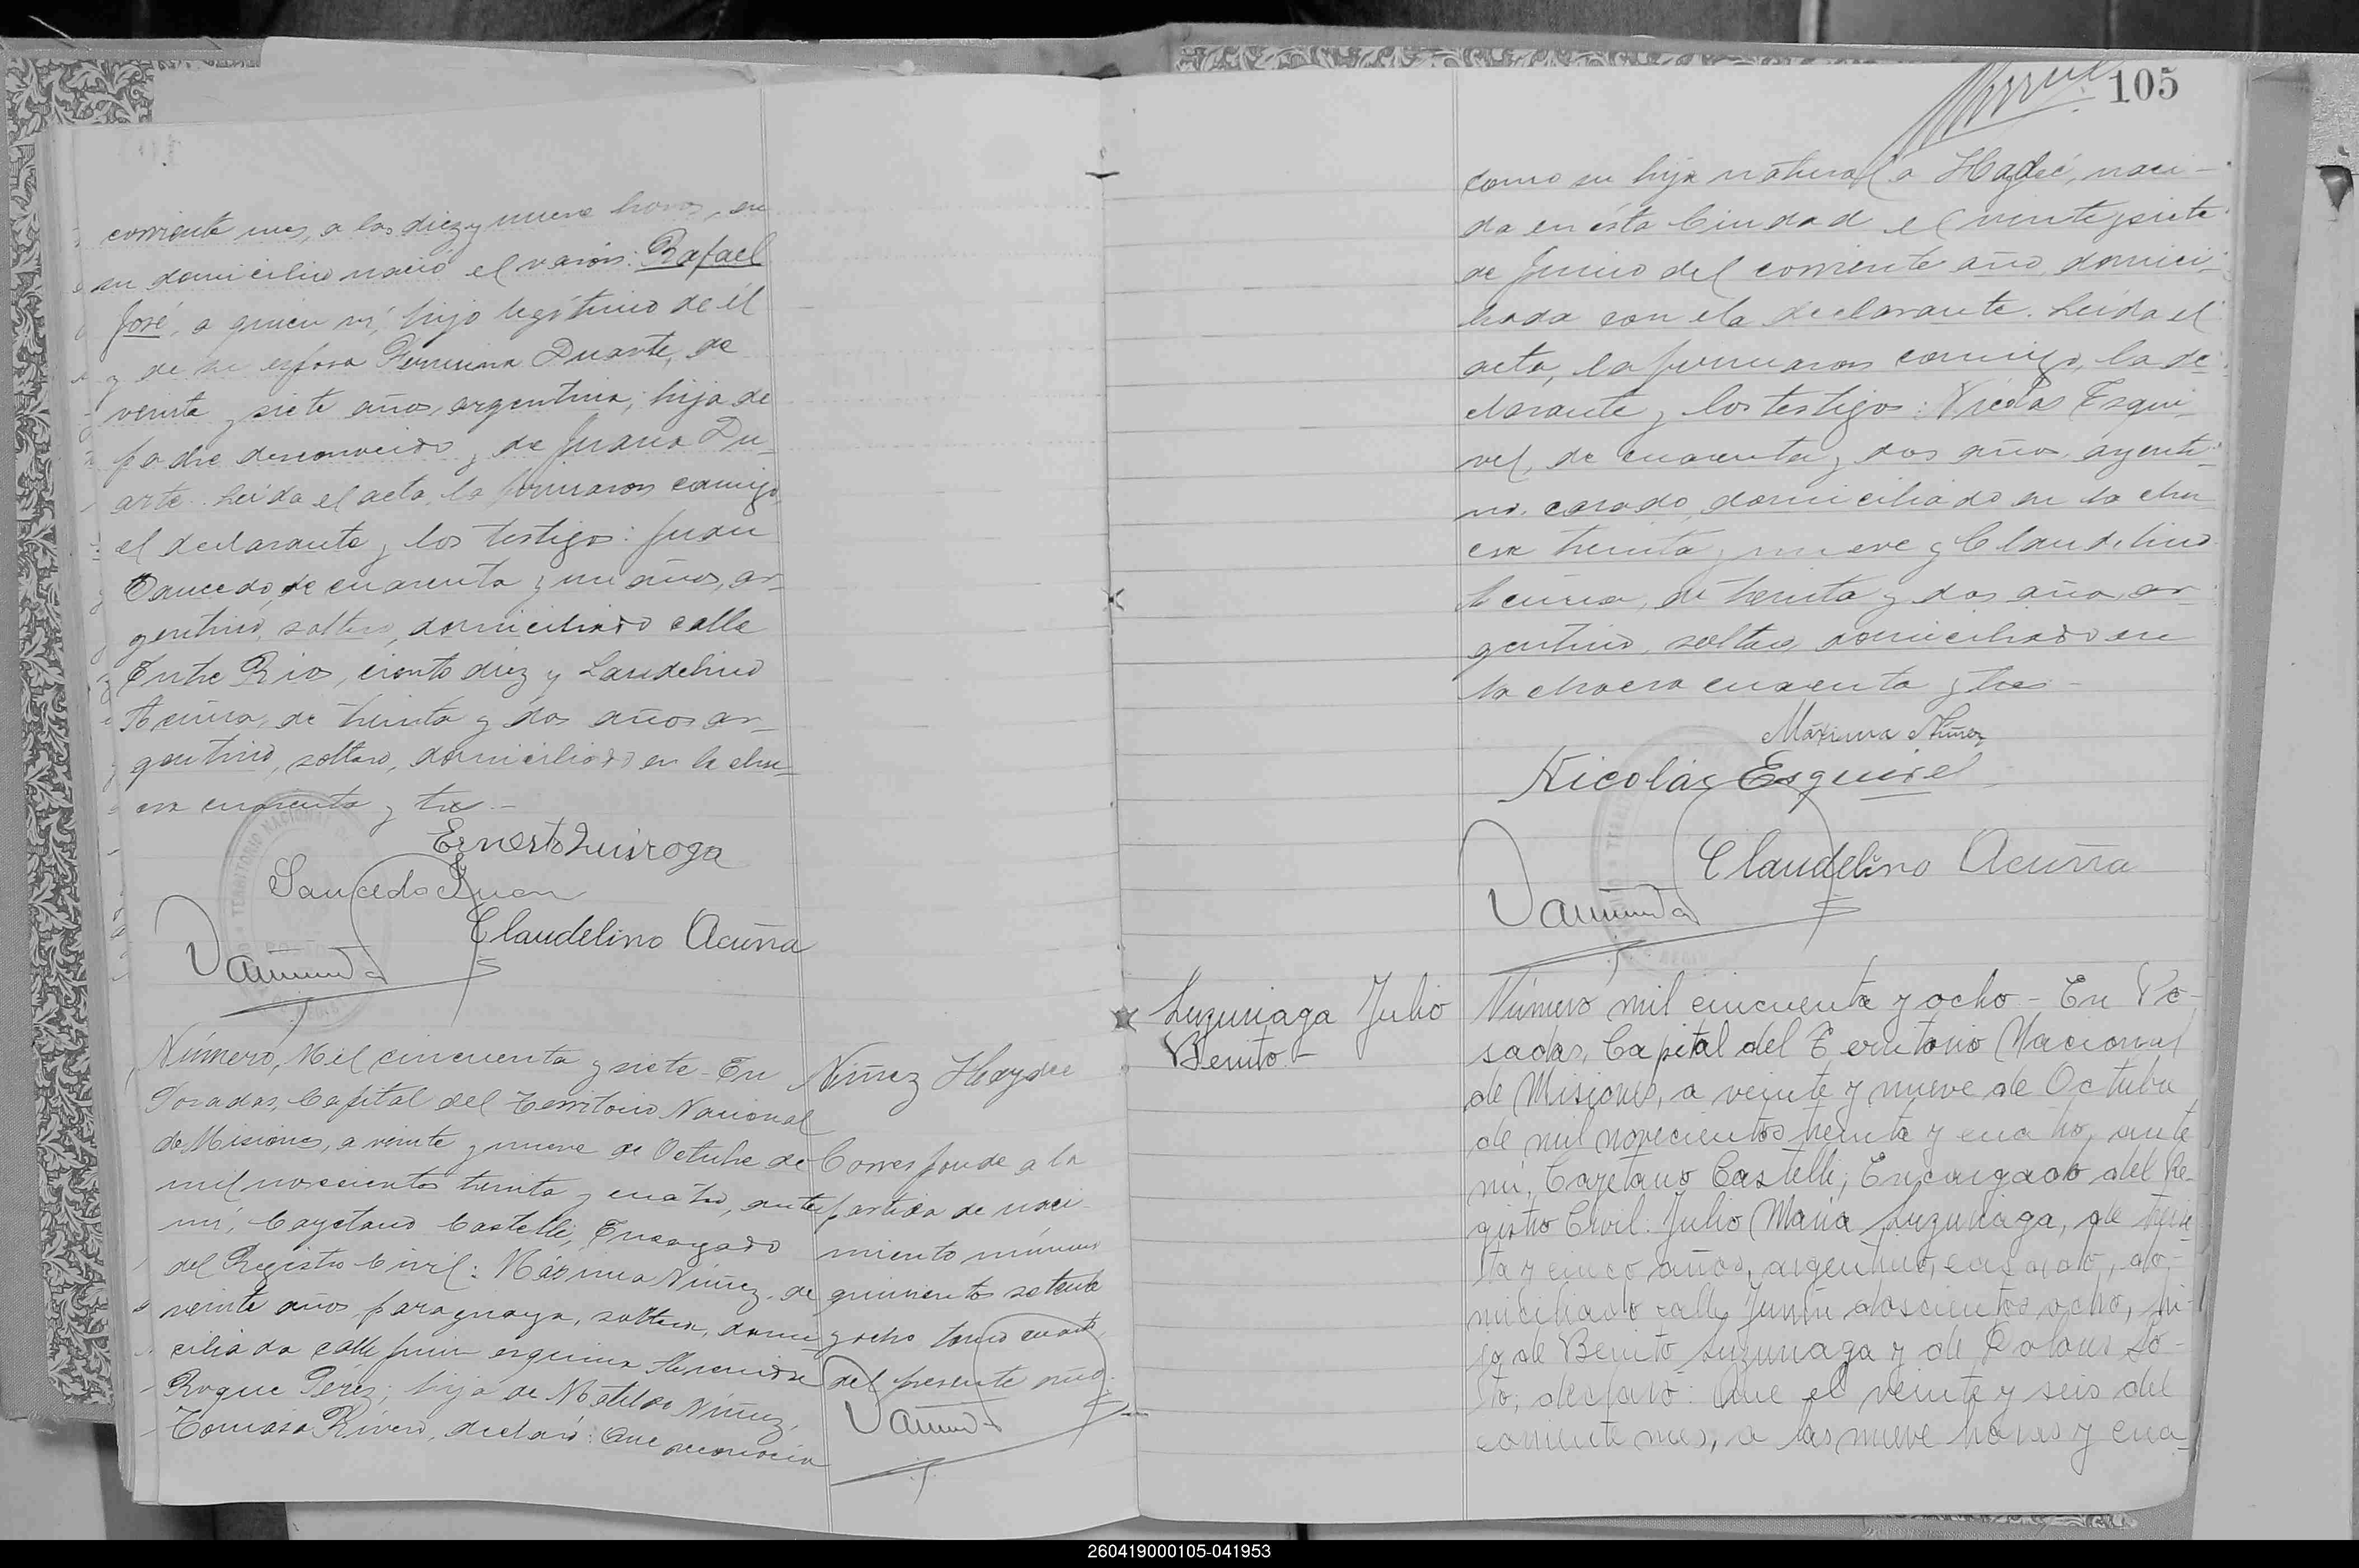 corriente mes, a las diez y nueve horas, en
su domicilio nació el varón: Rafael
José, a quien ví, hijo legítimo de él
y de su esposa Fermina Duarte, de
veinte y siete años, argentina, hija de
padre desconocido y de Juana Du-
arte. Leída el acta, la firmaron conmigo,
el declarante y los testigos: Juan
Saucedo, de cuarenta y un años, ar-
gentino, soltero, domiciliado calle
Entre Rios, ciento diez y Laudelino
Acuña, de treinta y dos años ar-
gentino, soltero, domiciliado en la cha-
cra cuarenta y tres.-
Ernesto Quiroga
Saucedo Juan
Claudelino Acuña
Número, Mil cincuenta y siete - En
Posadas, Capital del Territorio Nacional
de Misiones, a veinte y nueve de Octubre de
mil novecientos treinta y cuatro, ante
mí, Cayetano Castelli, Encargado
del Registro Civil: Máxima Núñez, de
veinte años, paraguaya, soltera, domi-
ciliada calle Junin esquina Avenida
Roque Pérez; hija de Matilde Núñez,
Tomasa Rivero, declaró: Que reconocía
Núñez Haydee
Corresponde a la
partida de naci-
miento número
quinientos setenta
y ocho tomo cuarto
del presente año.
105
como su hija natural a Haydeé, naci-
da en ésta Ciudad el veinte y siete
de Junio del corriente año, domici-
liada con ela declarante. Leída el
acta, la firmaron conmigo, la de-
clarante y los testigos: Nicolás Esqui-
vel, de cuarenta y dos años, argenti-
no, casado, domiciliado en la cha-
cra treinta y nueve y Claudelino
Acuña, de treinta y dos años, ar-
gentino, soltero, domiciliado en
la chacra cuarenta y tres.-
Máxima Núñez
Nicolás Esquivel
Claudelino Acuña
Luzuriaga Julio
Benito-
Número mil cincuenta y ocho - En Po-
sadas, Capital del Territorio Nacional
de Misiones, a veinte y nueve de Octubre
de mil novecientos treinta y cuatro, ante
mí, Cayetano Castelli, Encargado del Re-
gistro Civil: Julio María Luzuriaga, de trein-
ta y cinco años, argentino, casado, do-
miciliado calle Junín doscientos ocho, hi-
jo de Benito Luzuriaga y de Dolores So-
to, declaró: Que el veinte y seis del
corriente mes, a las nueve horas y cua-
260419000105-041953